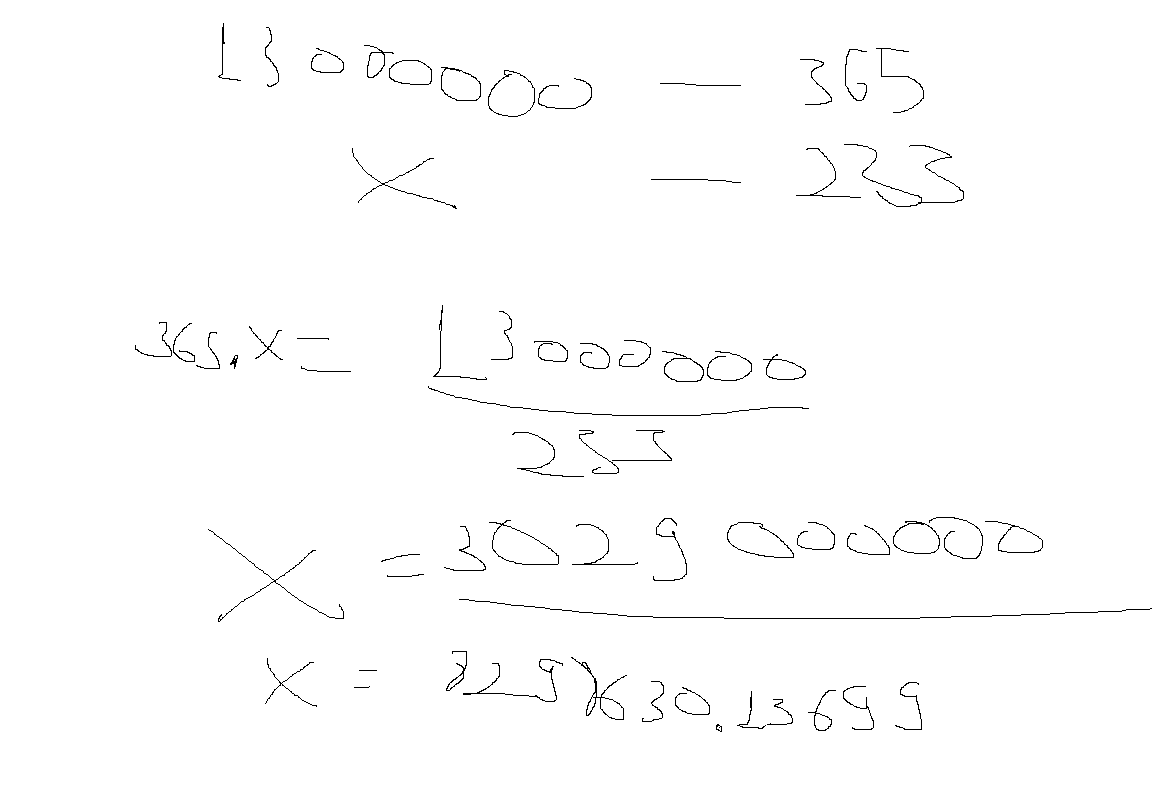 13000000 — 365
x — 233
365.x = 13000000
233
x = 3029000000
x = 8298630.13699